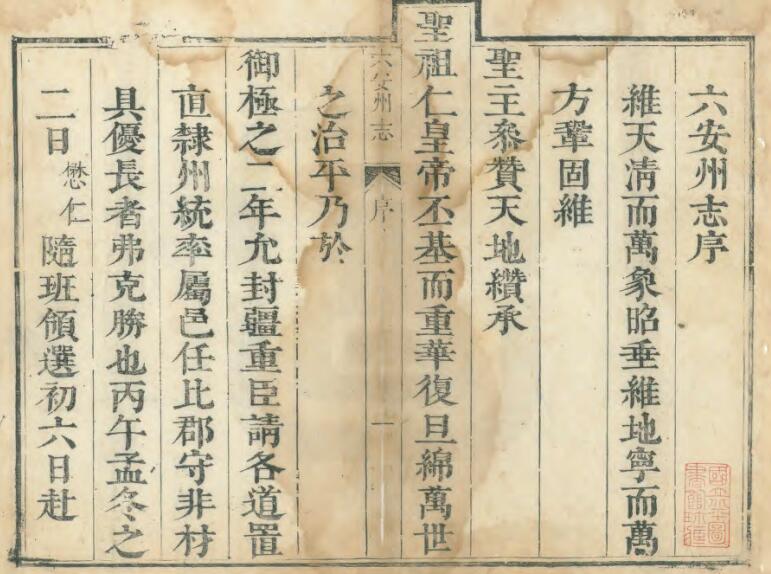 六安州志序
維天清而萬象昭垂維地寧而萬
方鞏固維
聖主參贊天地纘承
聖祖仁皇帝丕基而重華復旦綿萬世
六安州志 序 一
之治平乃於
御極之二年允封疆重臣請各道置
直隸州統率屬邑任比郡守非材
具優長者弗克勝也丙午孟冬之
二日懋仁隨班領選初六日赴